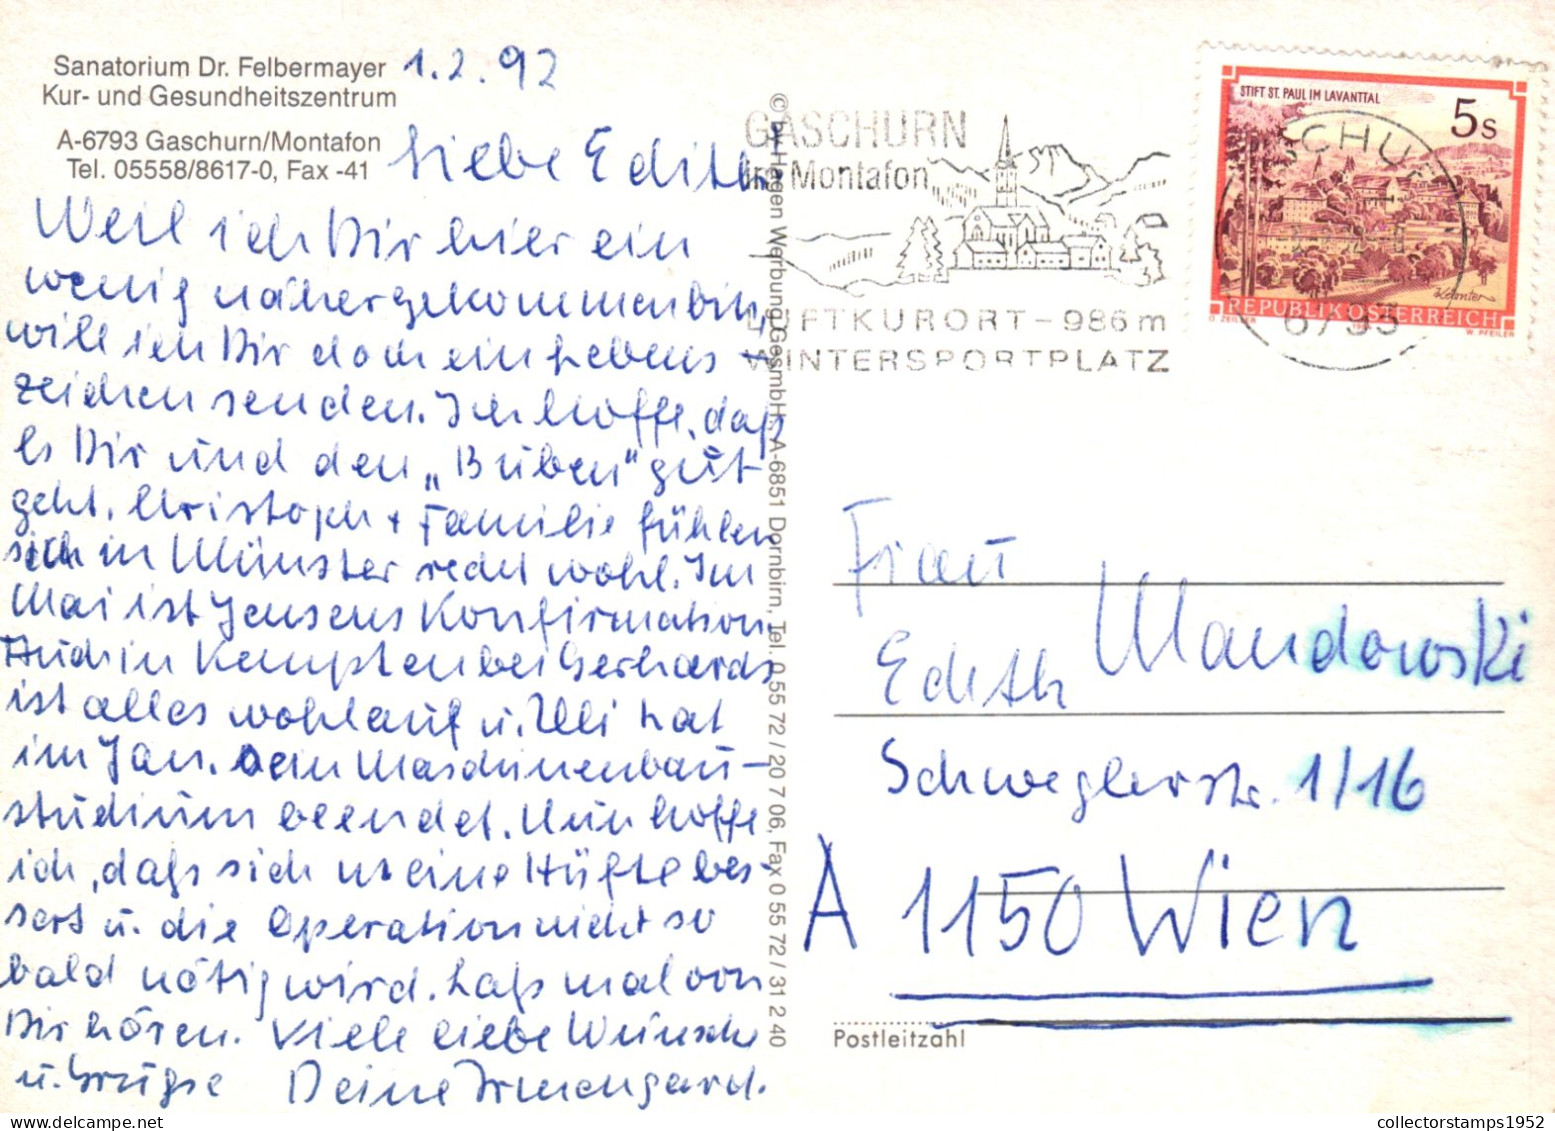 Sanatorium Dr. Felbermayer
Kur- und Gesundheitszentrum
A-6793 Gaschurn/Montafon
Tel. 05558/8617-0, Fax -41
1.2.92
Liebe Edith,
Weil ich Dir hier ein
wenig näher gekommen bin,
will ich Dir doch ein Lebens-
zeichen senden. Ich hoffe, daß
es Dir und den „Buben" gut
geht. Christoph + Familie fühlen
sich in Münster recht wohl. Im
Mai ist Jensens Konfirmation
Auch in Kempten bei Gerhards
ist alles wohlauf u. Ulli hat
im Jan. sein Maschinenbau-
studium beendet. Nun hoffe
ich, daß sich meine Hüfte bes-
sert u. die Operation nicht so
bald nötig wird. Laß mal von
Dir hören. Viele liebe Wünsche
u. Grüße Deine Irmengard.
© by Hagen Werbung GesmbH, A-6851 Dornbirn, Tel. 0 55 72 / 20 7 06, Fax 0 55 72 / 31 2 40
GASCHURN
im Montafon
LUFTKURORT - 986 m
WINTERSPORTPLATZ
STIFT ST. PAUL IM LAVANTTAL
5s
REPUBLIK ÖSTERREICH
W. PFEILER
6793
Frau
Edith Mandowski
Schweglerstr. 1/16
A 1150 Wien
Postleitzahl
collectorstamps1952